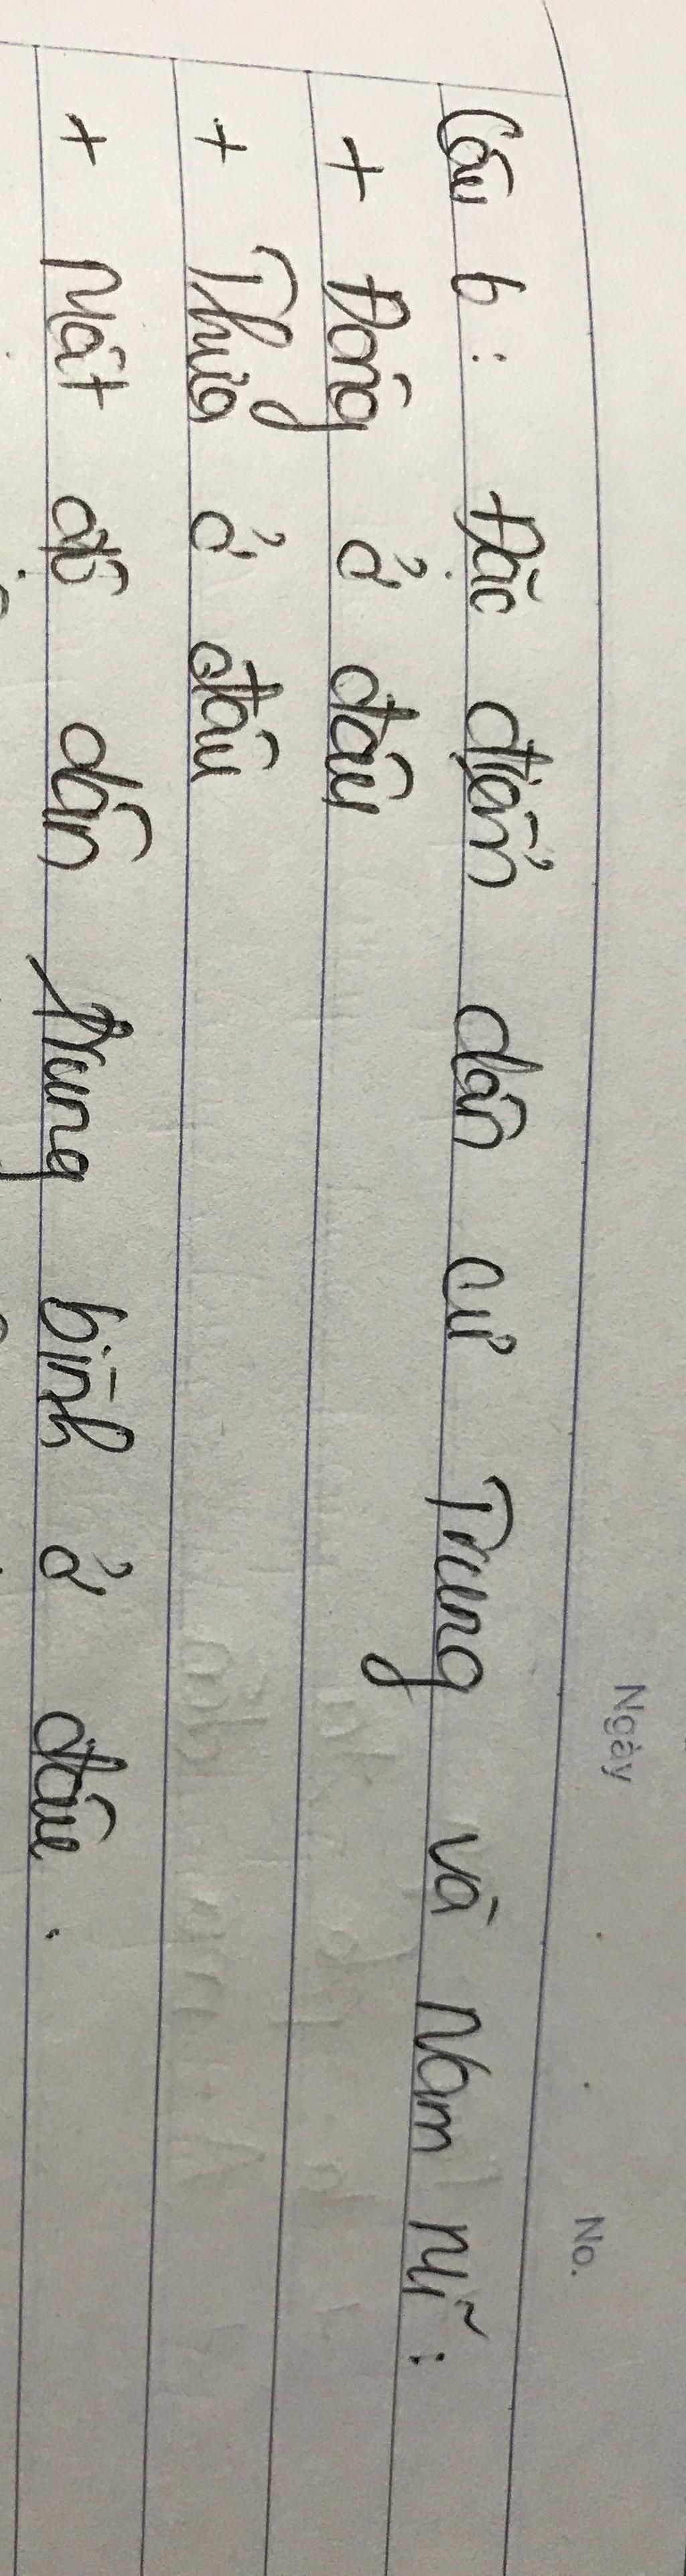 Ngày No.
Câu b: Đặc điểm dân cư Trung và Nam Mĩ:
+ Đông ở đâu
+ Thưa ở đâu
+ Mật độ dân trung bình ở đâu.